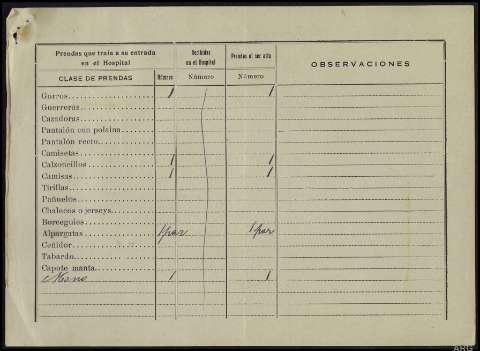 Prendas que traía a su entrada en el Hospital
Recibidas en el Hospital
Prendas al ser alta
OBSERVACIONES
CLASE DE PRENDAS Número Número Número
Gorros 1 1
Guerreras
Cazadoras
Pantalón con polaina
Pantalón recto
Camisetas
Calzoncillos 1 1
Camisas 1 1
Tirillas
Pañuelos
Chalecos o jerseys
Borceguíes
Alpargatas 1 par 1 par
Ceñidor
Tabardo
Capote manta
Mono 1 1
ARG